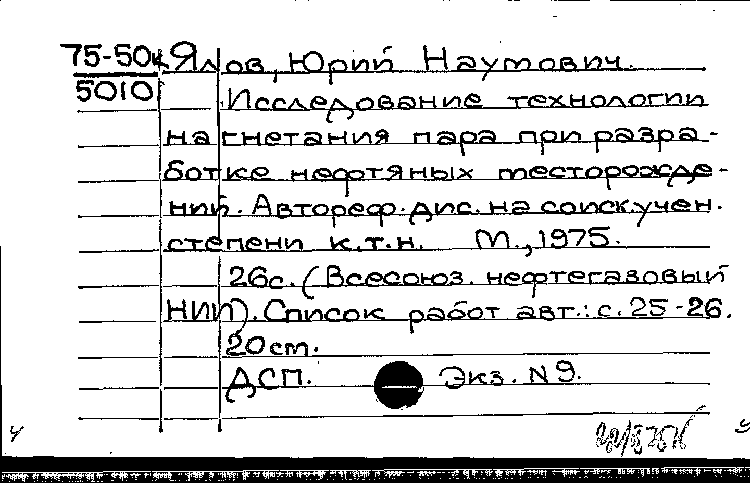 75-50к Ялов, Юрий Наумович.
5010
Исследование технологии
нагнетания пара при разра-
ботке нефтяных месторожде-
ний. Автореф. дис. на соиск. учен.
степени к.т.н. М., 1975.
26с. (Всесоюз. нефтегазовый
НИИ). Список работ авт.: с. 25-26.
20 см.
ДСП. Экз. N 9.